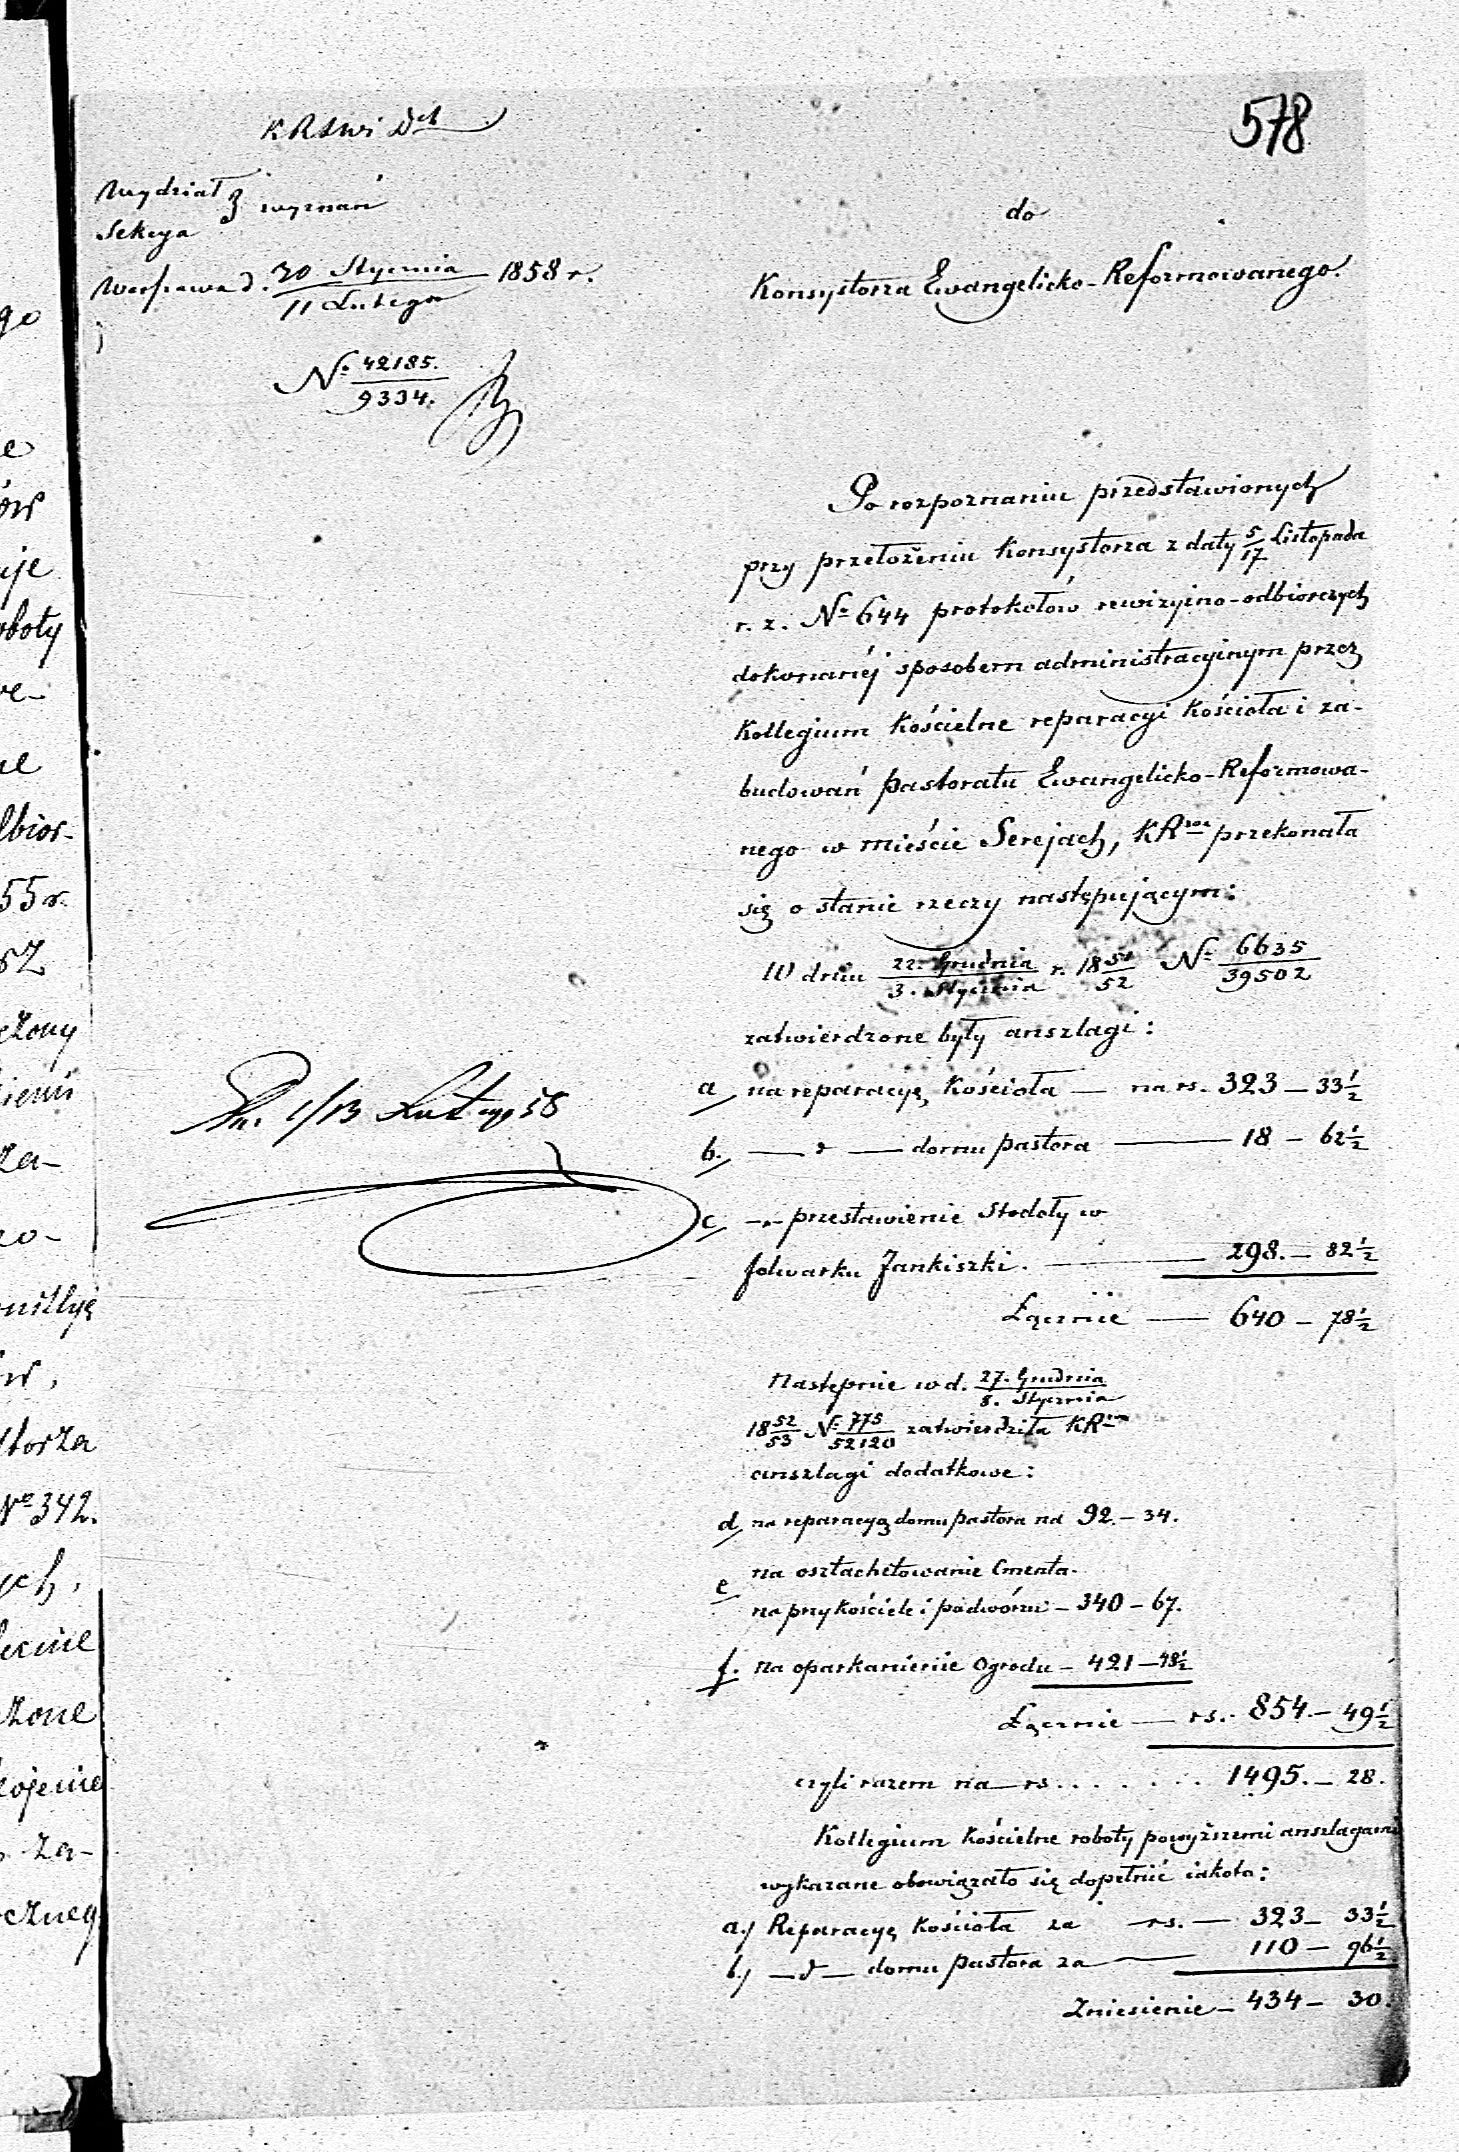 578
KRSWi Dch
Wydział
Sekcya } wyznań
Warszawa d. 30 Stycznia / 11 Lutego 1858 r.
№ 42185. / 9334.
do
Konsystorza Ewangelicko-Reformowanego.
Po rozpoznaniu przedstawionych
przy przełożeniu Konsystorza z daty 5/17 Listopada
r. z. № 644 protokołów rewizyino-odbiorczych
dokonanéj sposobem administracyinym przez
Kollegium Kościelne reparacyi Kościoła i za-
budowań pastoratu Ewangelicko-Reformowa-
nego w mieście Serejach, KRwa przekonała
się o stanie rzeczy następującym:
W dniu 22. Grudnia / 3. Stycznia r. 18 51/52 № 6635 / 39502
zatwierdzone były anszlagi:
a na reparacyę Kościoła — na rs. 323 — 33 1/2
b. — d — domu pastora — 18 — 62 1/2
c — „ — przestawienie Stodoły w
folwarku Jankiszki. — 298. — 82 1/2
Łącznie — 640 — 78 1/2
Pr. 1/13 Lutego 58
Następnie w d. 27. Grudnia / 8. Stycznia
18 52/53 № 775 / 52120 zatwierdziła KRwa
anszlagi dodatkowe:
d, na reparacyą domu pastora na 92. — 34.
e na osztachetowanie Cmenta-
na przy kościele i podwórzu — 340 — 67.
f. na oparkanienie Ogrodu — 421 — 48 1/2
Łącznie — rs. 854. — 49 1/2
czyli razem na rs . . . . . . . 1495. — 28.
Kollegium Kościelne roboty powyższemi anszlagami
wykazane obowiązało się dopełnić iakoto:
a.) Reparacyę Kościoła za — rs. — 323 — 33 1/2
b.) — d — domu pastora za — 110 — 96 1/2
Zniesienie — 434 — 30.
go
e
ów
uje
oboty
we-
ne
dbior-
55 r.
sz
czony
za-
zo-
ów,
storza
№ 342.
ych,
żone
kojenie
za-